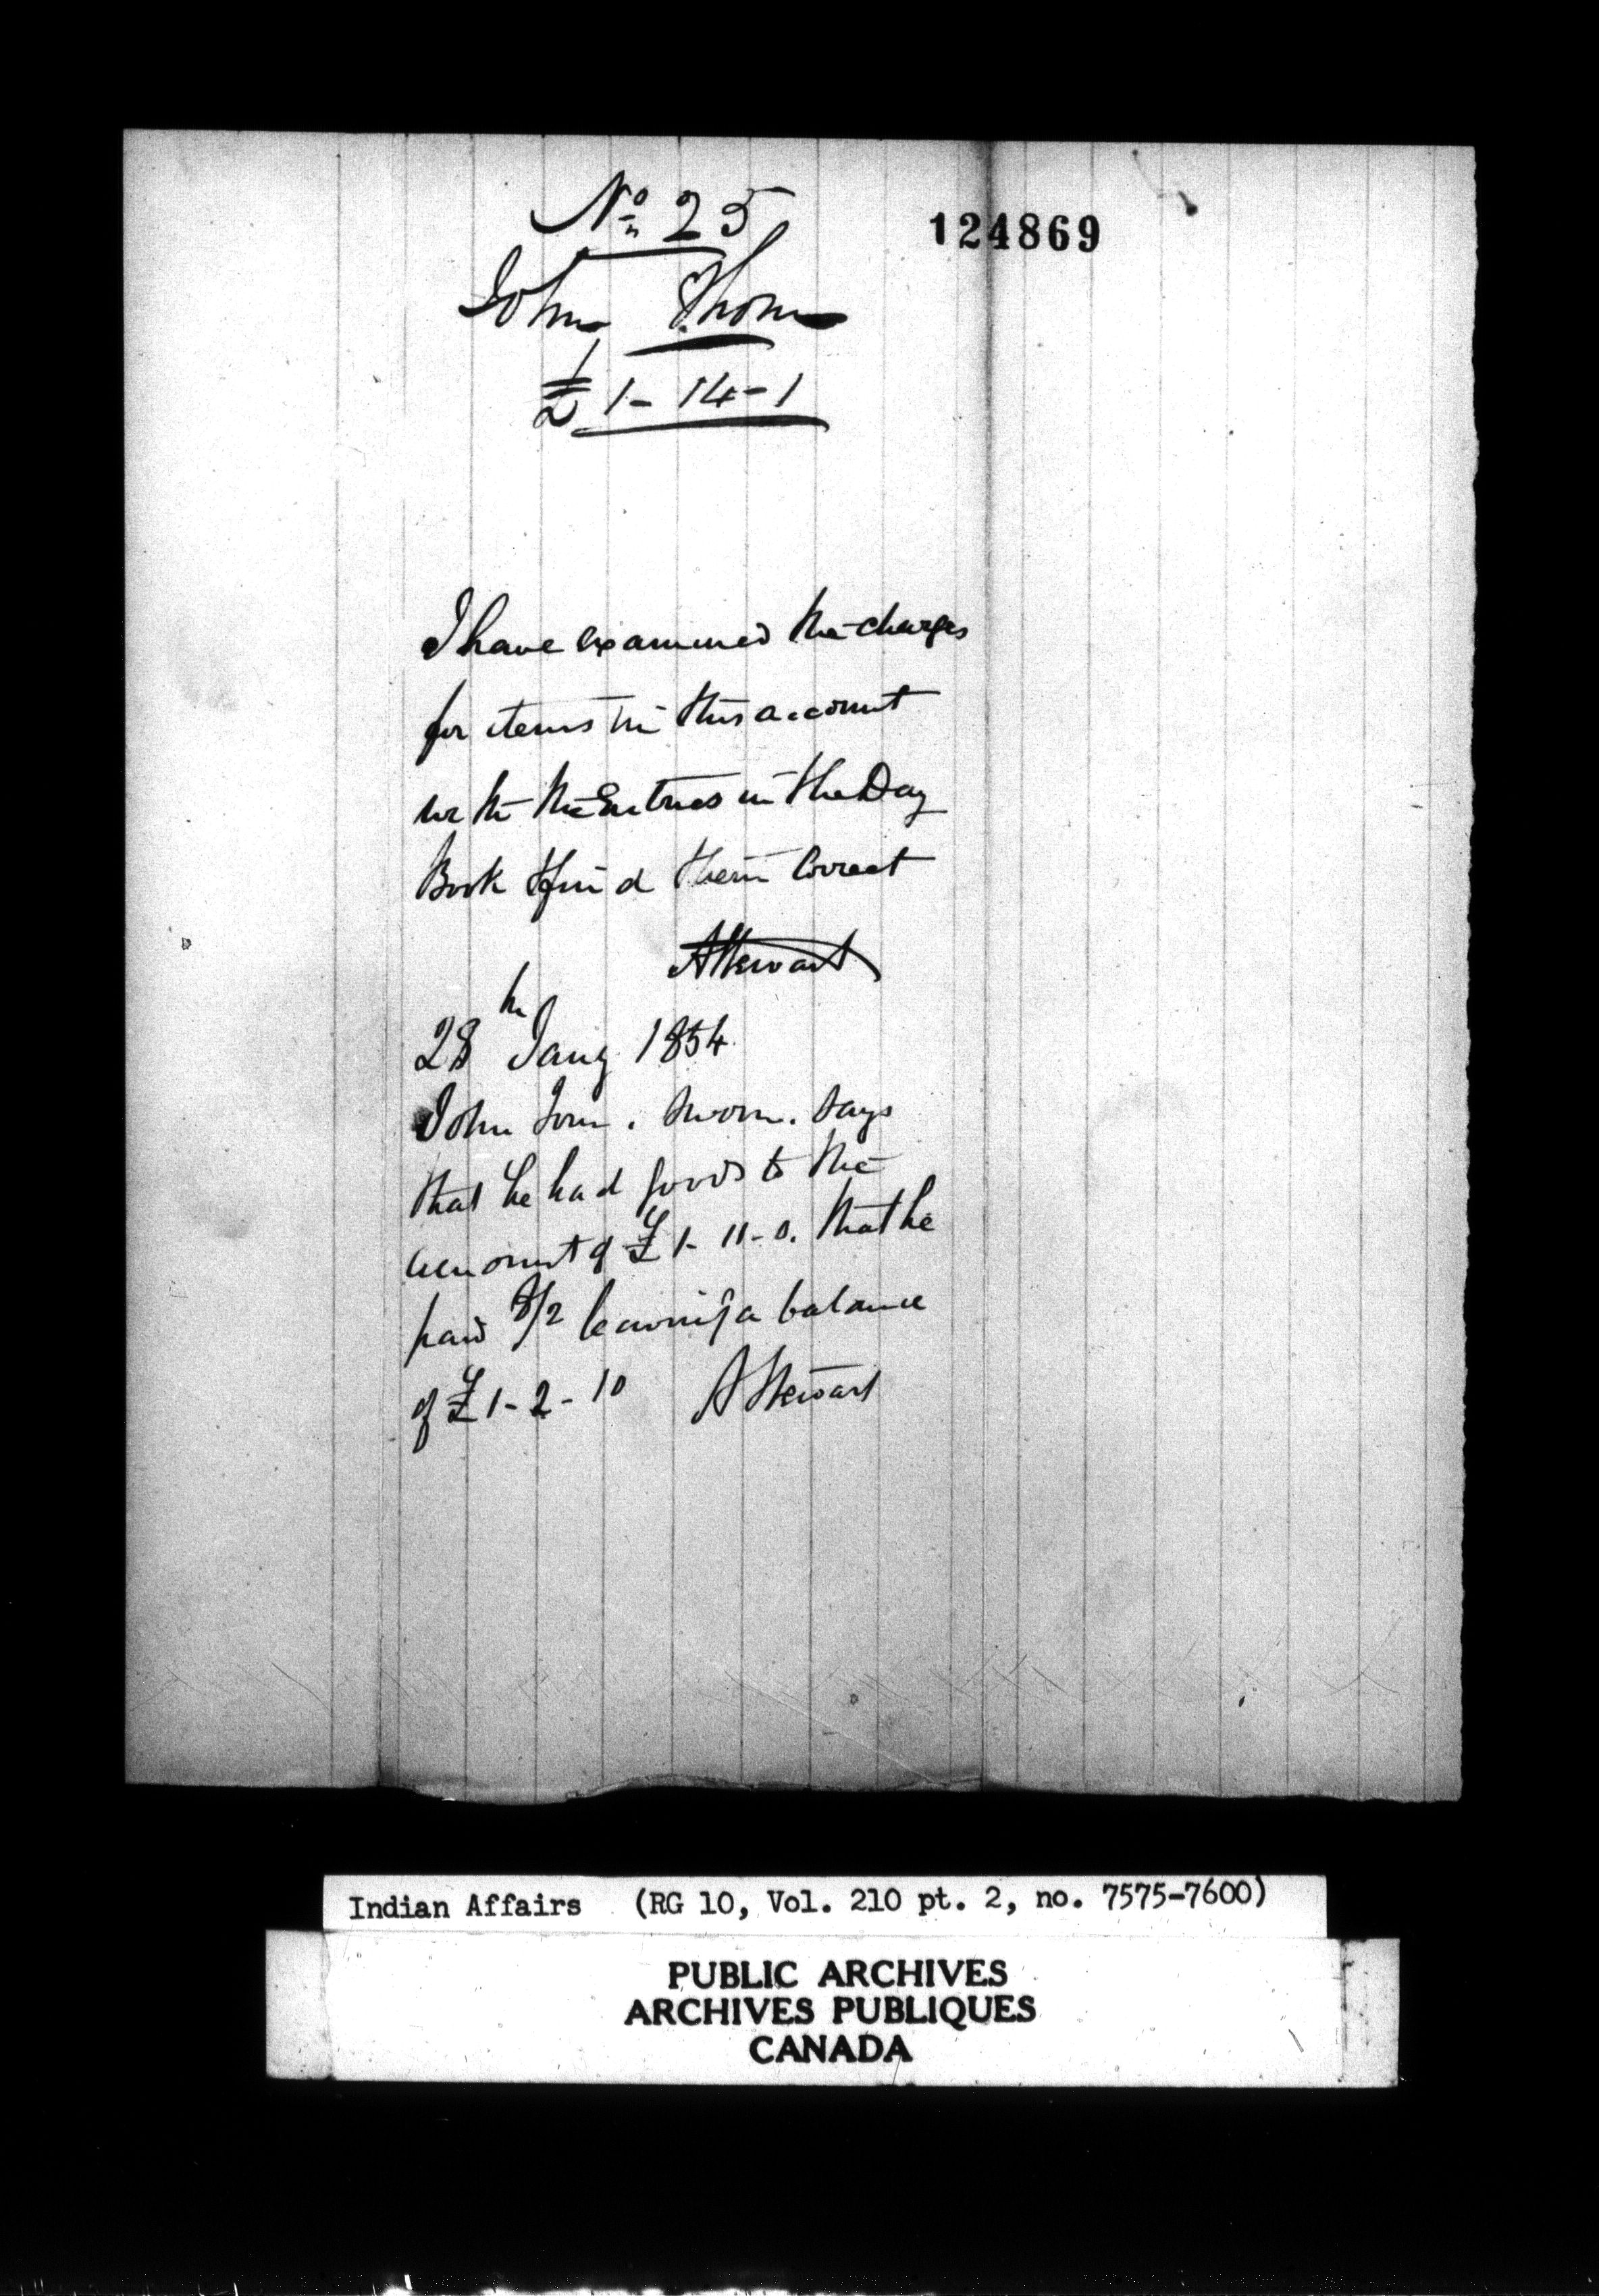 No. 25
124869
John Thom
£ 1-14-1
I have examined the charges
for items in this account
with the Entries in the Day
Book & find them Correct
AStewart
28th Jany 1854
John Tom. Sworn. Says
that he had goods to the
amount of £ 1-11-0. that he
paid 8/2 leaving a balance
of £ 1-2-10 AStewart
Indian Affairs (RG 10, Vol. 210 pt. 2, no. 7575-7600)
PUBLIC ARCHIVES
ARCHIVES PUBLIQUES
CANADA